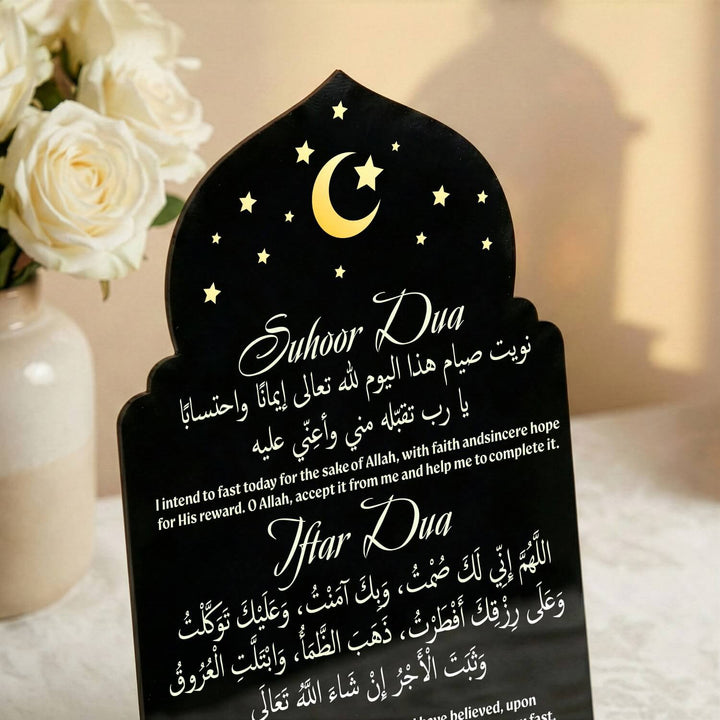 Suhoor Dua
نويت صيام هذا اليوم لله تعالى إيمانًا واحتسابًا
يا رب تقبّله مني وأعِنّي عليه
I intend to fast today for the sake of Allah, with faith andsincere hope
for His reward. O Allah, accept it from me and help me to complete it.
Iftar Dua
اللَّهُمَّ إِنِّي لَكَ صُمْتُ، وَبِكَ آمَنْتُ، وَعَلَيْكَ تَوَكَّلْتُ
وَعَلَى رِزْقِكَ أَفْطَرْتُ، ذَهَبَ الظَّمَأُ، وَابْتَلَّتِ الْعُرُوقُ
وَثَبَتَ الْأَجْرُ إِنْ شَاءَ اللَّهُ تَعَالَى
have believed, upon
fast.